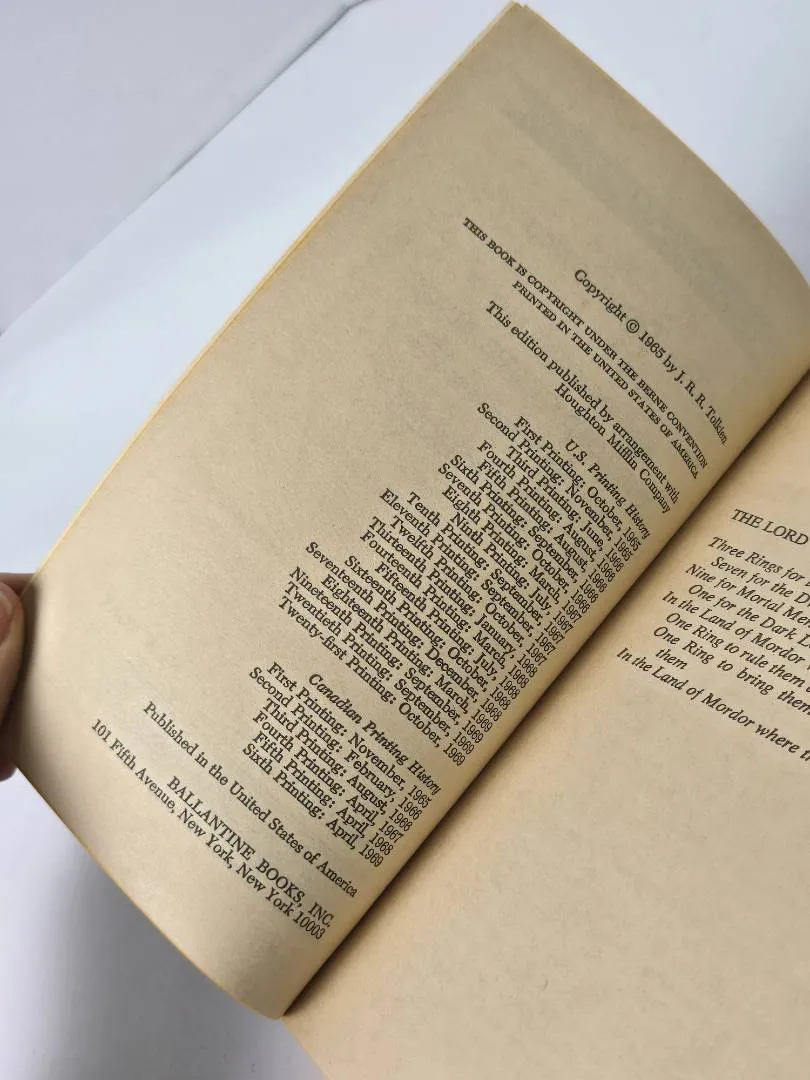 Copyright © 1965 by J. R. R. Tolkien
THIS BOOK IS COPYRIGHT UNDER THE BERNE CONVENTION
PRINTED IN THE UNITED STATES OF AMERICA
This edition published by arrangement with
Houghton Mifflin Company
U.S. Printing History
First Printing: October, 1965
Second Printing: November, 1965
Third Printing: June, 1966
Fourth Printing: August, 1966
Fifth Printing: August, 1966
Sixth Printing: September, 1966
Seventh Printing: October, 1966
Eighth Printing: March, 1967
Ninth Printing: July, 1967
Tenth Printing: September, 1967
Eleventh Printing: September, 1967
Twelfth Printing: October, 1967
Thirteenth Printing: January, 1968
Fourteenth Printing: March, 1968
Fifteenth Printing: July, 1968
Sixteenth Printing: October, 1968
Seventeenth Printing: December, 1968
Eighteenth Printing: March, 1969
Nineteenth Printing: September, 1969
Twentieth Printing: September, 1969
Twenty-first Printing: October, 1969
Canadian Printing History
First Printing: November, 1965
Second Printing: February, 1966
Third Printing: August, 1966
Fourth Printing: April, 1967
Fifth Printing: April, 1968
Sixth Printing: April, 1969
Published in the United States of America
BALLANTINE BOOKS, INC.
101 Fifth Avenue, New York, New York 10003
THE LORD
Three Rings for
Seven for the
Nine for Mortal Men
One for the Dark
In the Land of Mordor
One Ring to rule them
One Ring to bring them
them
In the Land of Mordor where